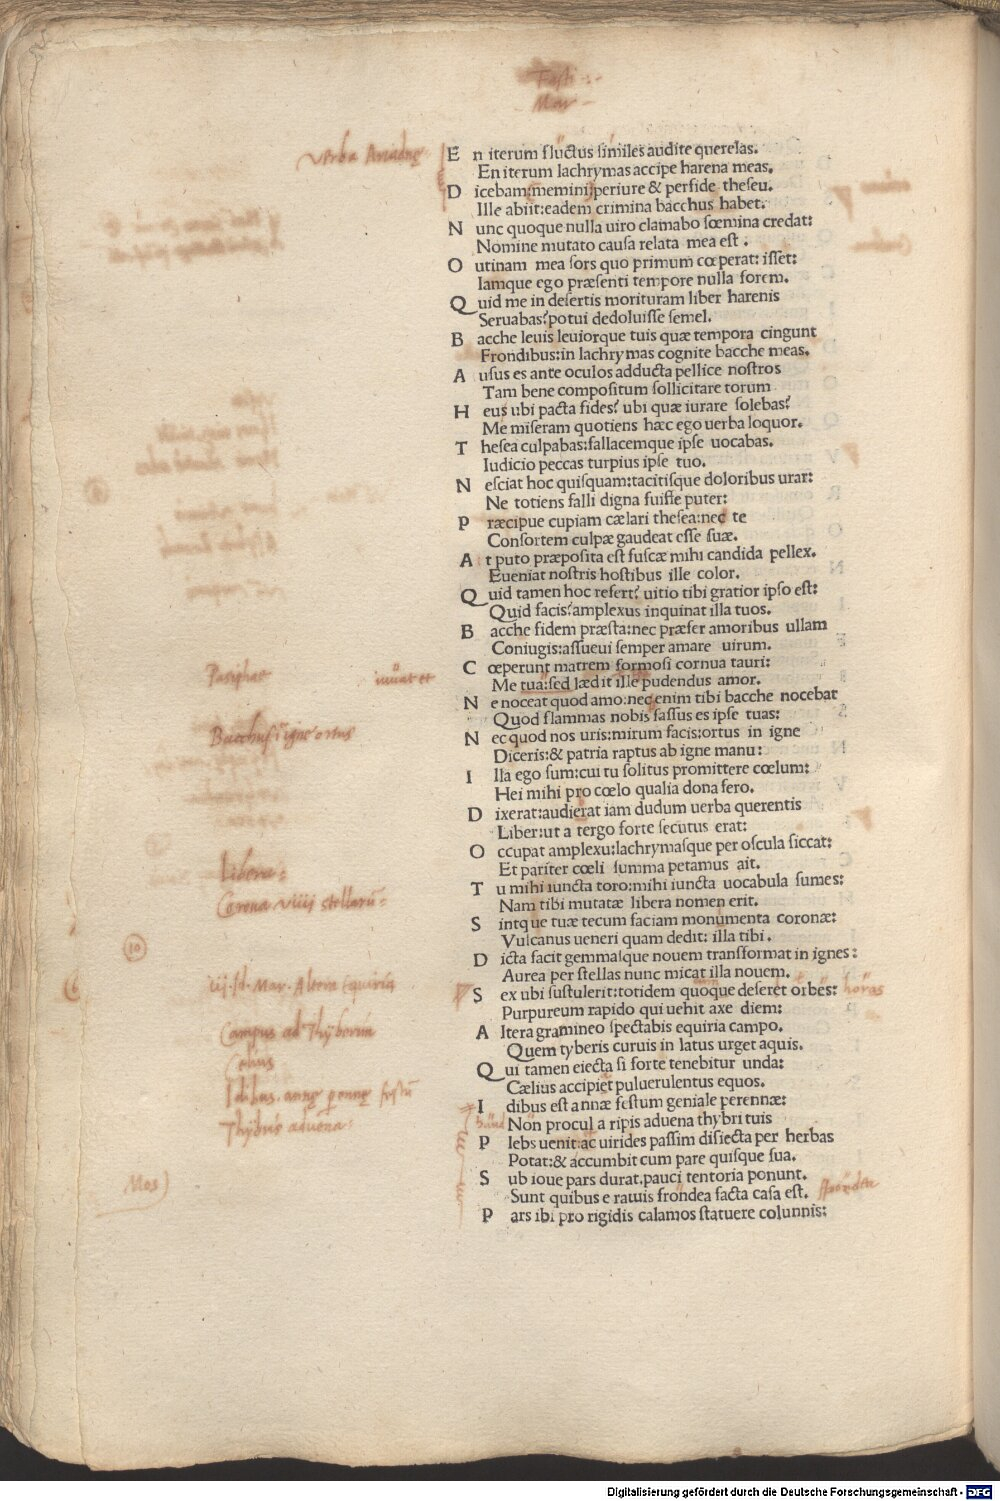 Fasti
Mar
verba Ariadnę
E n iterum fluctus similes audite querelas.
En iterum lachrymas accipe harena meas.
D icebam:memini:periure & perfide theseu.
Ille abiit:eadem crimina bacchus habet.
N unc quoque nulla uiro clamabo fœmina credat:
Nomine mutato causa relata mea est .
O utinam mea sors quo primum cœperat: isset:
Iamque ego præsenti tempore nulla forem.
Q uid me in desertis morituram liber harenis
Seruabas?potui dedoluisse semel.
B acche leuis leuiorque tuis quæ tempora cingunt
Frondibus:in lachrymas cognite bacche meas.
A usus es ante oculos adducta pellice nostros
Tam bene compositum sollicitare torum
H eus ubi pacta fides? ubi quæ iurare solebas?
Me miseram quotiens hæc ego uerba loquor.
T hesea culpabas:fallacemque ipse uocabas.
Iudicio peccas turpius ipse tuo.
N esciat hoc quisquam:tacitisque doloribus urar:
Ne totiens falli digna fuisse puter:
P ræcipue cupiam cælari thesea:nec te
Consortem culpæ gaudeat esse suæ.
A t puto præposita est fuscæ mihi candida pellex.
Eueniat nostris hostibus ille color.
Q uid tamen hoc refert? uitio tibi gratior ipso est:
Quid facis?amplexus inquinat illa tuos.
B acche fidem præsta:nec præfer amoribus ullam
Coniugis:assueui semper amare uirum.
Pasiphae
C œperunt matrem formosi cornua tauri:
Me tua:sed lædit ille pudendus amor.
N e noceat quod amo:nec enim tibi bacche nocebat
Quod flammas nobis fassus es ipse tuas:
Bacchus ī igne ortus
N ec quod nos uris:mirum facis:ortus in igne
Diceris:& patria raptus ab igne manu:
I lla ego sum:cui tu solitus promittere cœlum:
Hei mihi pro cœlo qualia dona fero.
D ixerat:audierat iam dudum uerba querentis
Liber:ut a tergo forte secutus erat:
O ccupat amplexu:lachrymasque per oscula siccat:
Et pariter cœli summa petamus ait.
Libera:
T u mihi iuncta toro:mihi iuncta uocabula sumes:
Nam tibi mutatæ libera nomen erit.
Corona viiij stellarū
S intque tuæ tecum faciam monumenta coronæ:
Vulcanus ueneri quam dedit: illa tibi.
10
D icta facit gemmasque nouem transformat in ignes:
Aurea per stellas nunc micat illa nouem.
Mar. Altera Equiria
S ex ubi sustulerit:totidem quoque deseret orbes: horas
Purpureum rapido qui uehit axe diem:
Campus ad Thyberim
A ltera gramineo spectabis equiria campo.
Quem tyberis curuis in latus urget aquis.
Celius
Q ui tamen eiecta si forte tenebitur unda:
Cælius accipiet puluerulentus equos.
Idibus. annę pennę festū
I dibus est annæ festum geniale perennæ:
Thybris aduena:
Non procul a ripis aduena thybri tuis
P lebs uenit:ac uirides passim disiecta per herbas
Potat:& accumbit cum pare quisque sua.
Mos
S ub ioue pars durat.pauci tentoria ponunt.
Sunt quibus e ramis frondea facta casa est.
P ars ibi pro rigidis calamos statuere colunnis:
Digitalisierung gefördert durch die Deutsche Forschungsgemeinschaft - DFG